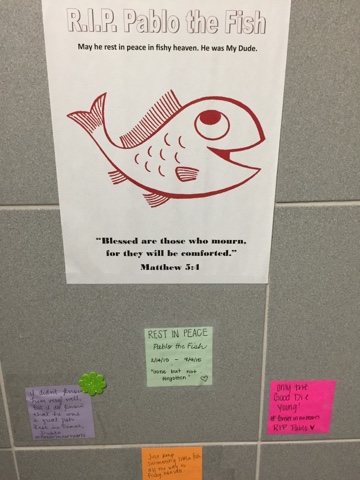 R.I.P. Pablo the Fish
May he rest in peace in fishy heaven. He was My Dude.
"Blessed are those who mourn,
for they will be comforted."
Matthew 5:4
REST IN PEACE
Pablo the Fish
"Gone but not
forgotten" ♡
I didn't know
him very well,
but I do know
that he was
a great
Rest in
only the
Good Die
Young!
RIP Pablo ♥
Just keep
swimming little fish